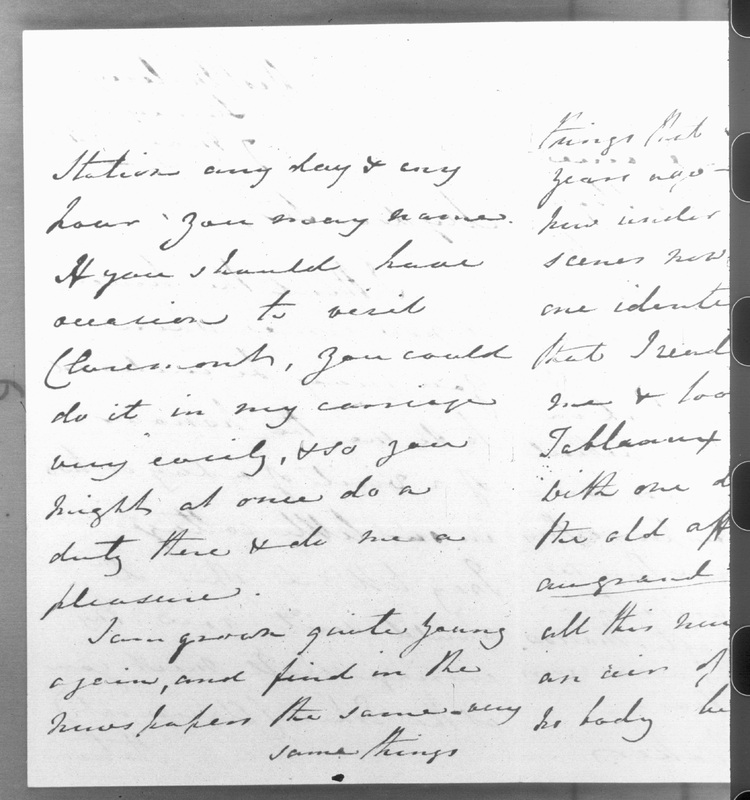 Station any day & any
hour you may name.
If you should have
occasion to visit
Claremont, you could
do it in my carriage
very easily, & so you
might at once do a
duty there & do me a
pleasure.
I am grown quite young
again, and find in the
newspapers the same very
same things
things that
years ago
new under
scenes now
one
that I read
me & loo
Tableaux
with one d
the old aff
au grand
all this
an air of
no body be